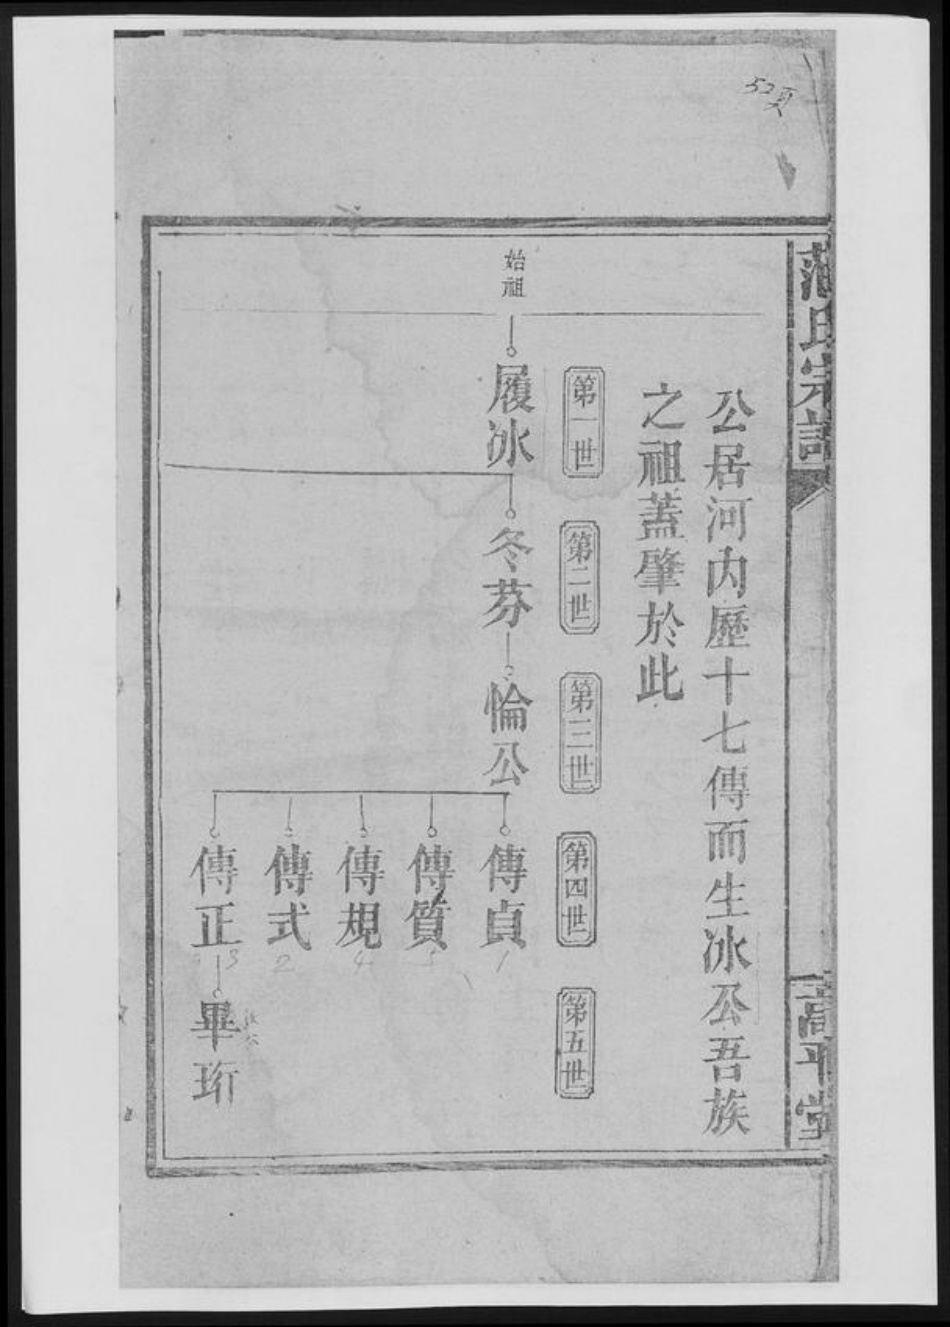 52頁
范氏宗譜
高平堂
公居河內歷十七傳而生冰公吾族
之祖蓋肇於此
第一世
第二世
第三世
第四世
第五世
始祖
履冰
冬芬
愉公
傳貞
1
傳質
5
傳規
4
傳式
2
傳正
3
畢珩